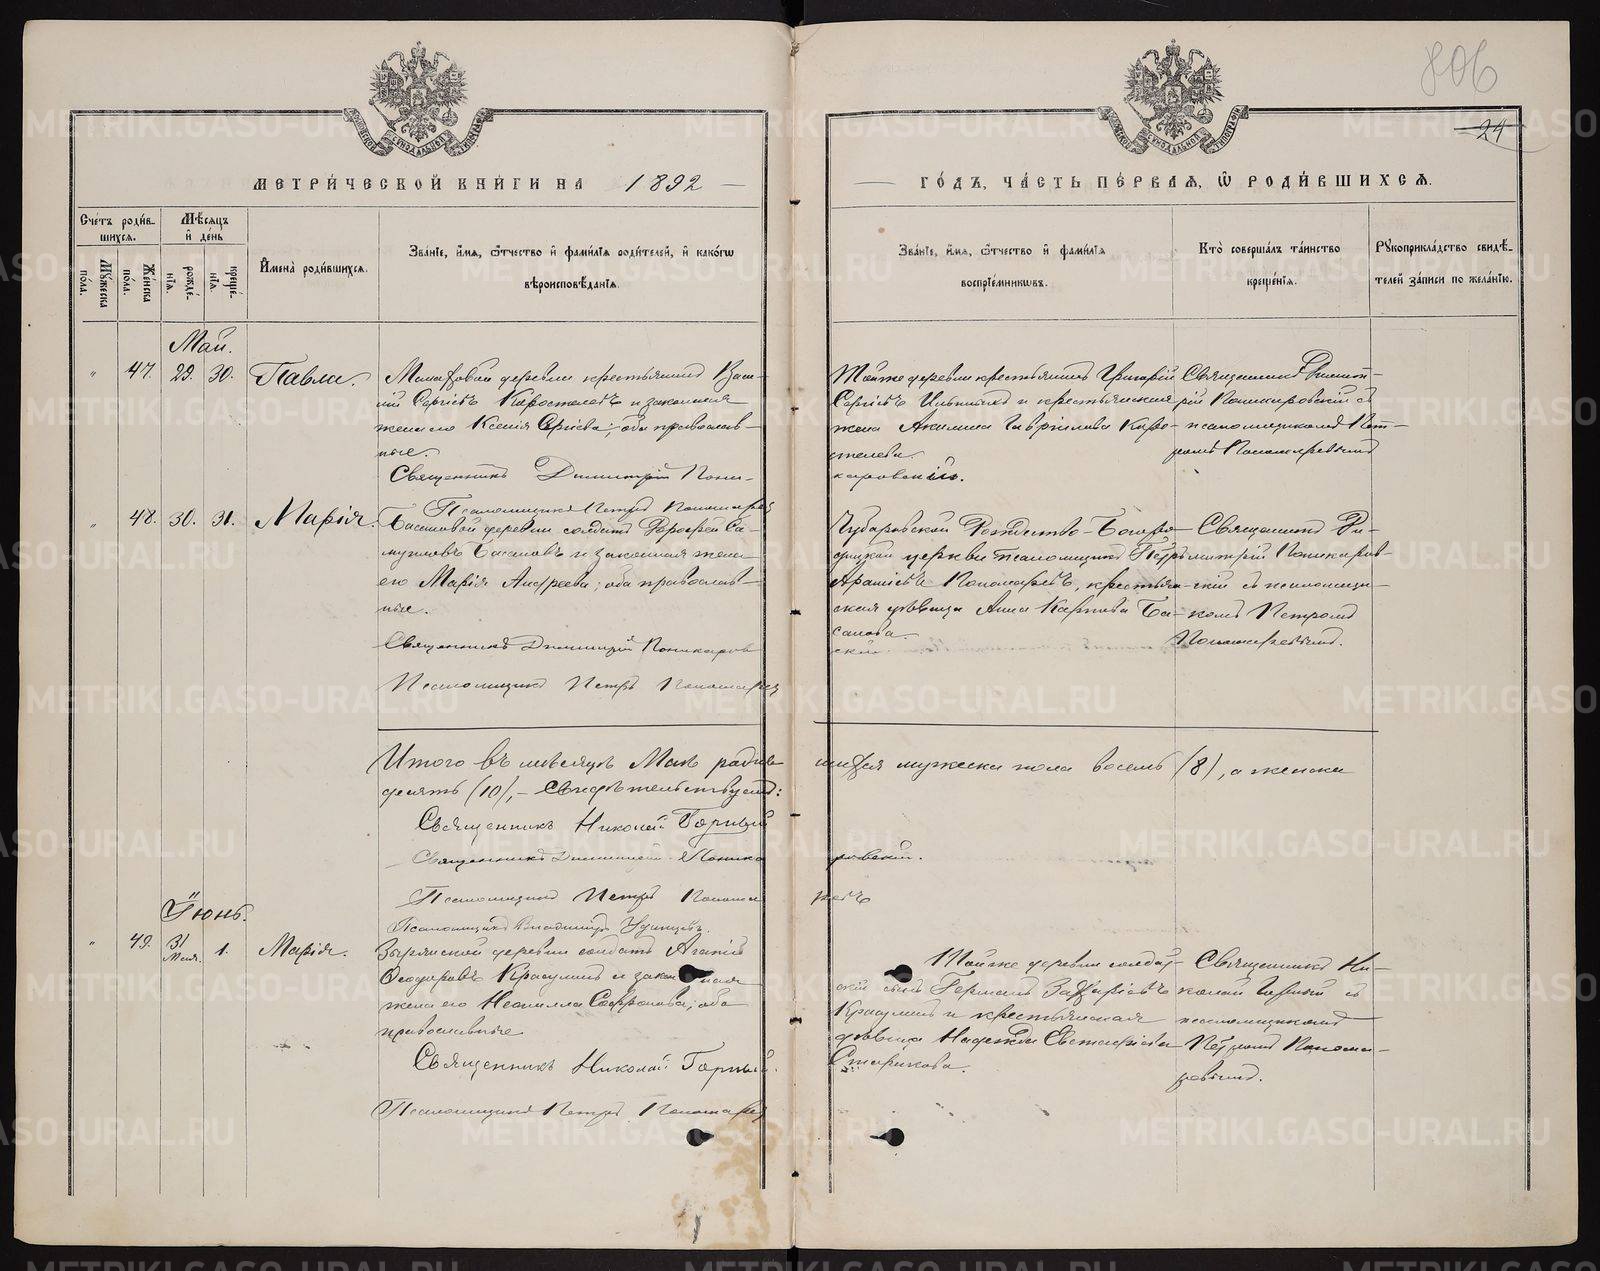 806
24
МЕТРИЧЕСКОЙ КНИГИ НА 1892
ГОДЪ, ЧАСТЬ ПЕРВАЯ, Ѡ РОДИВШИХСЯ.
Счетъ родив-
шихся.
Мужеска
пола.
Женска
пола.
Мѣсяцъ
и день
рожде-
нія.
креще-
нія.
Имена родившихся.
Званіе, имя, ѻтчество и фамилія родителей, и какогѡ
вѣроисповѣданія.
Званіе, имя, ѻтчество и фамилія
воспріемникѡвъ.
Кто совершалъ таинство
крещенія.
Рукоприкладство свидѣ-
телей записи по желанію.
Май.
" 47. 29. 30. Павла.
деревни крестьянинъ Васи-
лій Сергіевъ Коростелевъ и законная
жена его Ксенія Сергіева; оба православ-
ные.
Священникъ Димитрій Пони-
каровскій.
Псаломщикъ Петръ Пономарев
Тойже деревни крестьянинъ Григорій
Сергіевъ и крестьянская
жена Акилина Гаврилова Коро-
стелева.
Священникъ Димит-
рій Поникаровскій съ
псаломщикомъ Пет-
ромъ Пономаревымъ
" 48. 30. 31. Марія.
Басановой деревни солдатъ Дорофей Са-
муиловъ Басановъ и законная жена
его Марія Андреева; оба православ-
ные.
Священникъ Димитрій Поникаров
ский
Псаломщикъ Петръ Пономарев
Чубаровской Рождество-Богоро-
дицкой церкви псаломщикъ Петръ
Пономаревъ, крестьян-
ская дѣвица Анна Карпова Ба-
санова.
Священникъ Ди-
митрій Поникаров-
скій съ псаломщи-
комъ Петромъ
Пономаревымъ.
Итого въ мѣсяцѣ Маѣ родив
шихся мужеска пола восемь (8), а женска
десять (10), – Свидѣтельствуемъ:
Священникъ Николай Горный
Священникъ Димитрий Поника
ровский.
Псаломщикъ Петръ Понома
ревъ
Псаломщикъ Владимиръ Удинцевъ.
Іюнь.
" 49. 31 Мая. 1. Марія.
Зырянской деревни солдатъ Агапій
Ѳеодоровъ Красулинъ и законная
жена его Неонилла Софронова; оба
православные
Священникъ Николай Горный.
Псаломщикъ Петръ Пономарев
Тойже деревни солдат-
скій сынъ Германъ Захаріевъ
Красулинъ и крестьянская
дѣвица Надежда Евстафіева
Старикова.
Священникъ Ни-
колай Горный съ
псаломщикомъ
Петромъ Понома-
ревымъ.
METRIKI.GASO-URAL.RU